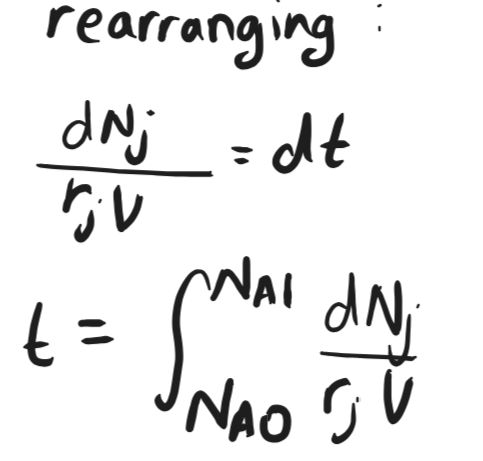 rearranging :
dNj / rjV = dt
t = ∫NA0^NA1 dNj / rjV